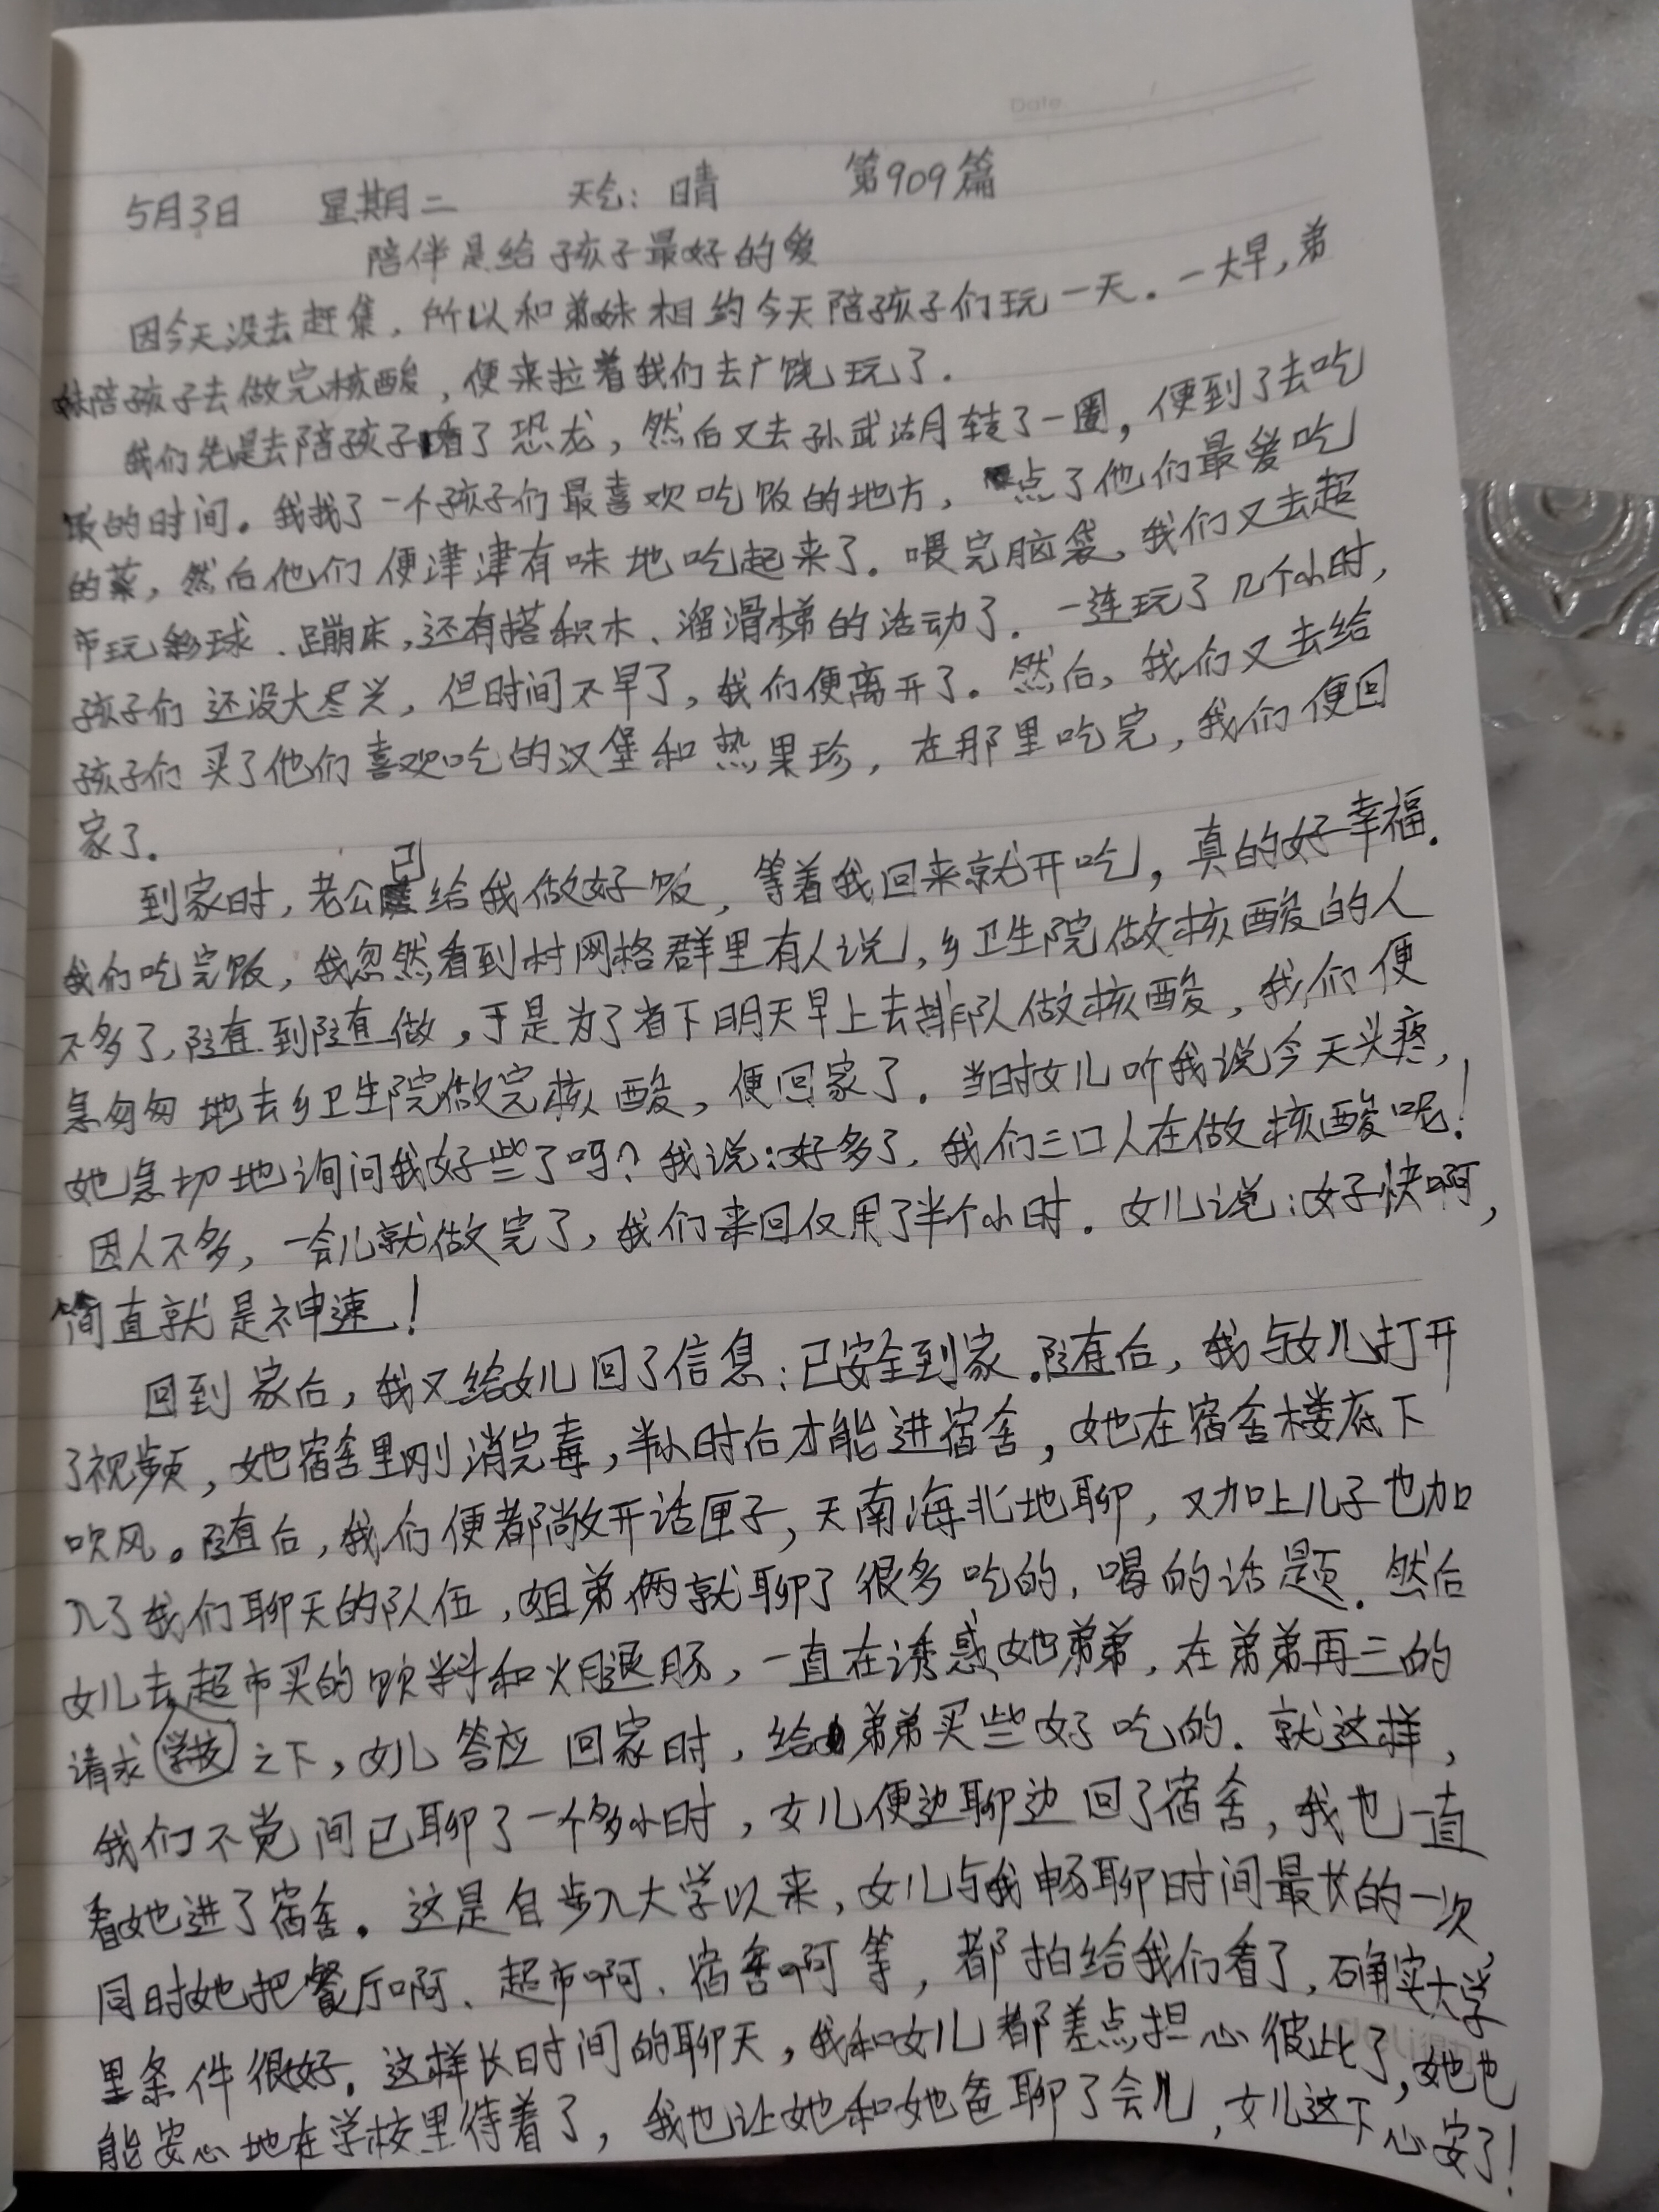 Date
5月3日 星期二 天气:晴 第909篇
陪伴是给孩子最好的爱
因今天没去赶集,所以和弟妹相约今天陪孩子们玩一天。一大早,弟
妹陪孩子去做完核酸,便来拉着我们去广饶玩了.
我们先是去陪孩子看了恐龙,然后又去孙武湖转了一圈,便到了去吃
饭的时间。我找了一个孩子们最喜欢吃饭的地方,点了他们最爱吃
的菜,然后他们便津津有味地吃起来了.喂完脑袋,我们又去超
市玩彩球、蹦床,还有搭积木、溜滑梯的活动了.一连玩了几个小时,
孩子们还没大尽兴,但时间不早了,我们便离开了.然后,我们又去给
孩子们买了他们喜欢吃的汉堡和热果珍,在那里吃完,我们便回
家了.
到家时,老公已给我做好饭,等着我回来就开吃,真的好幸福.
我们吃完饭,我忽然看到村网格群里有人说,乡卫生院做核酸的人
不多了,随到随做,于是为了省下明天早上去排队做核酸,我们便
急匆匆地去乡卫生院做完核酸,便回家了.当时女儿听我说今天头疼,
她急切地询问我好些了吗?我说:好多了,我们三口人在做核酸呢!
因人不多,一会儿就做完了,我们来回仅用了半个小时.女儿说:好快啊,
简直就是神速!
回到家后,我又给女儿回了信息:已安全到家.随后,我与女儿打开
了视频,她宿舍里刚消完毒,半小时后才能进宿舍,她在宿舍楼底下
吹风。随后,我们便都敞开话匣子,天南海北地聊,又加上儿子也加
入了我们聊天的队伍,姐弟俩就聊了很多吃的,喝的话题.然后
女儿去超市买的饮料和火腿肠,一直在诱惑她弟弟,在弟弟再三的
请求学校之下,女儿答应回家时,给弟弟买些好吃的.就这样,
我们不觉间已聊了一个多小时,女儿便边聊边回了宿舍,我也一直
看她进了宿舍。这是自步入大学以来,女儿与我畅聊时间最长的一次,
同时她把餐厅啊、超市啊、宿舍啊等,都拍给我们看了,确实大学
里条件很好.这样长时间的聊天,我和女儿都差点担心彼此了,她也
能安心地在学校里待着了,我也让她和她爸聊了会儿,女儿这下心安了!